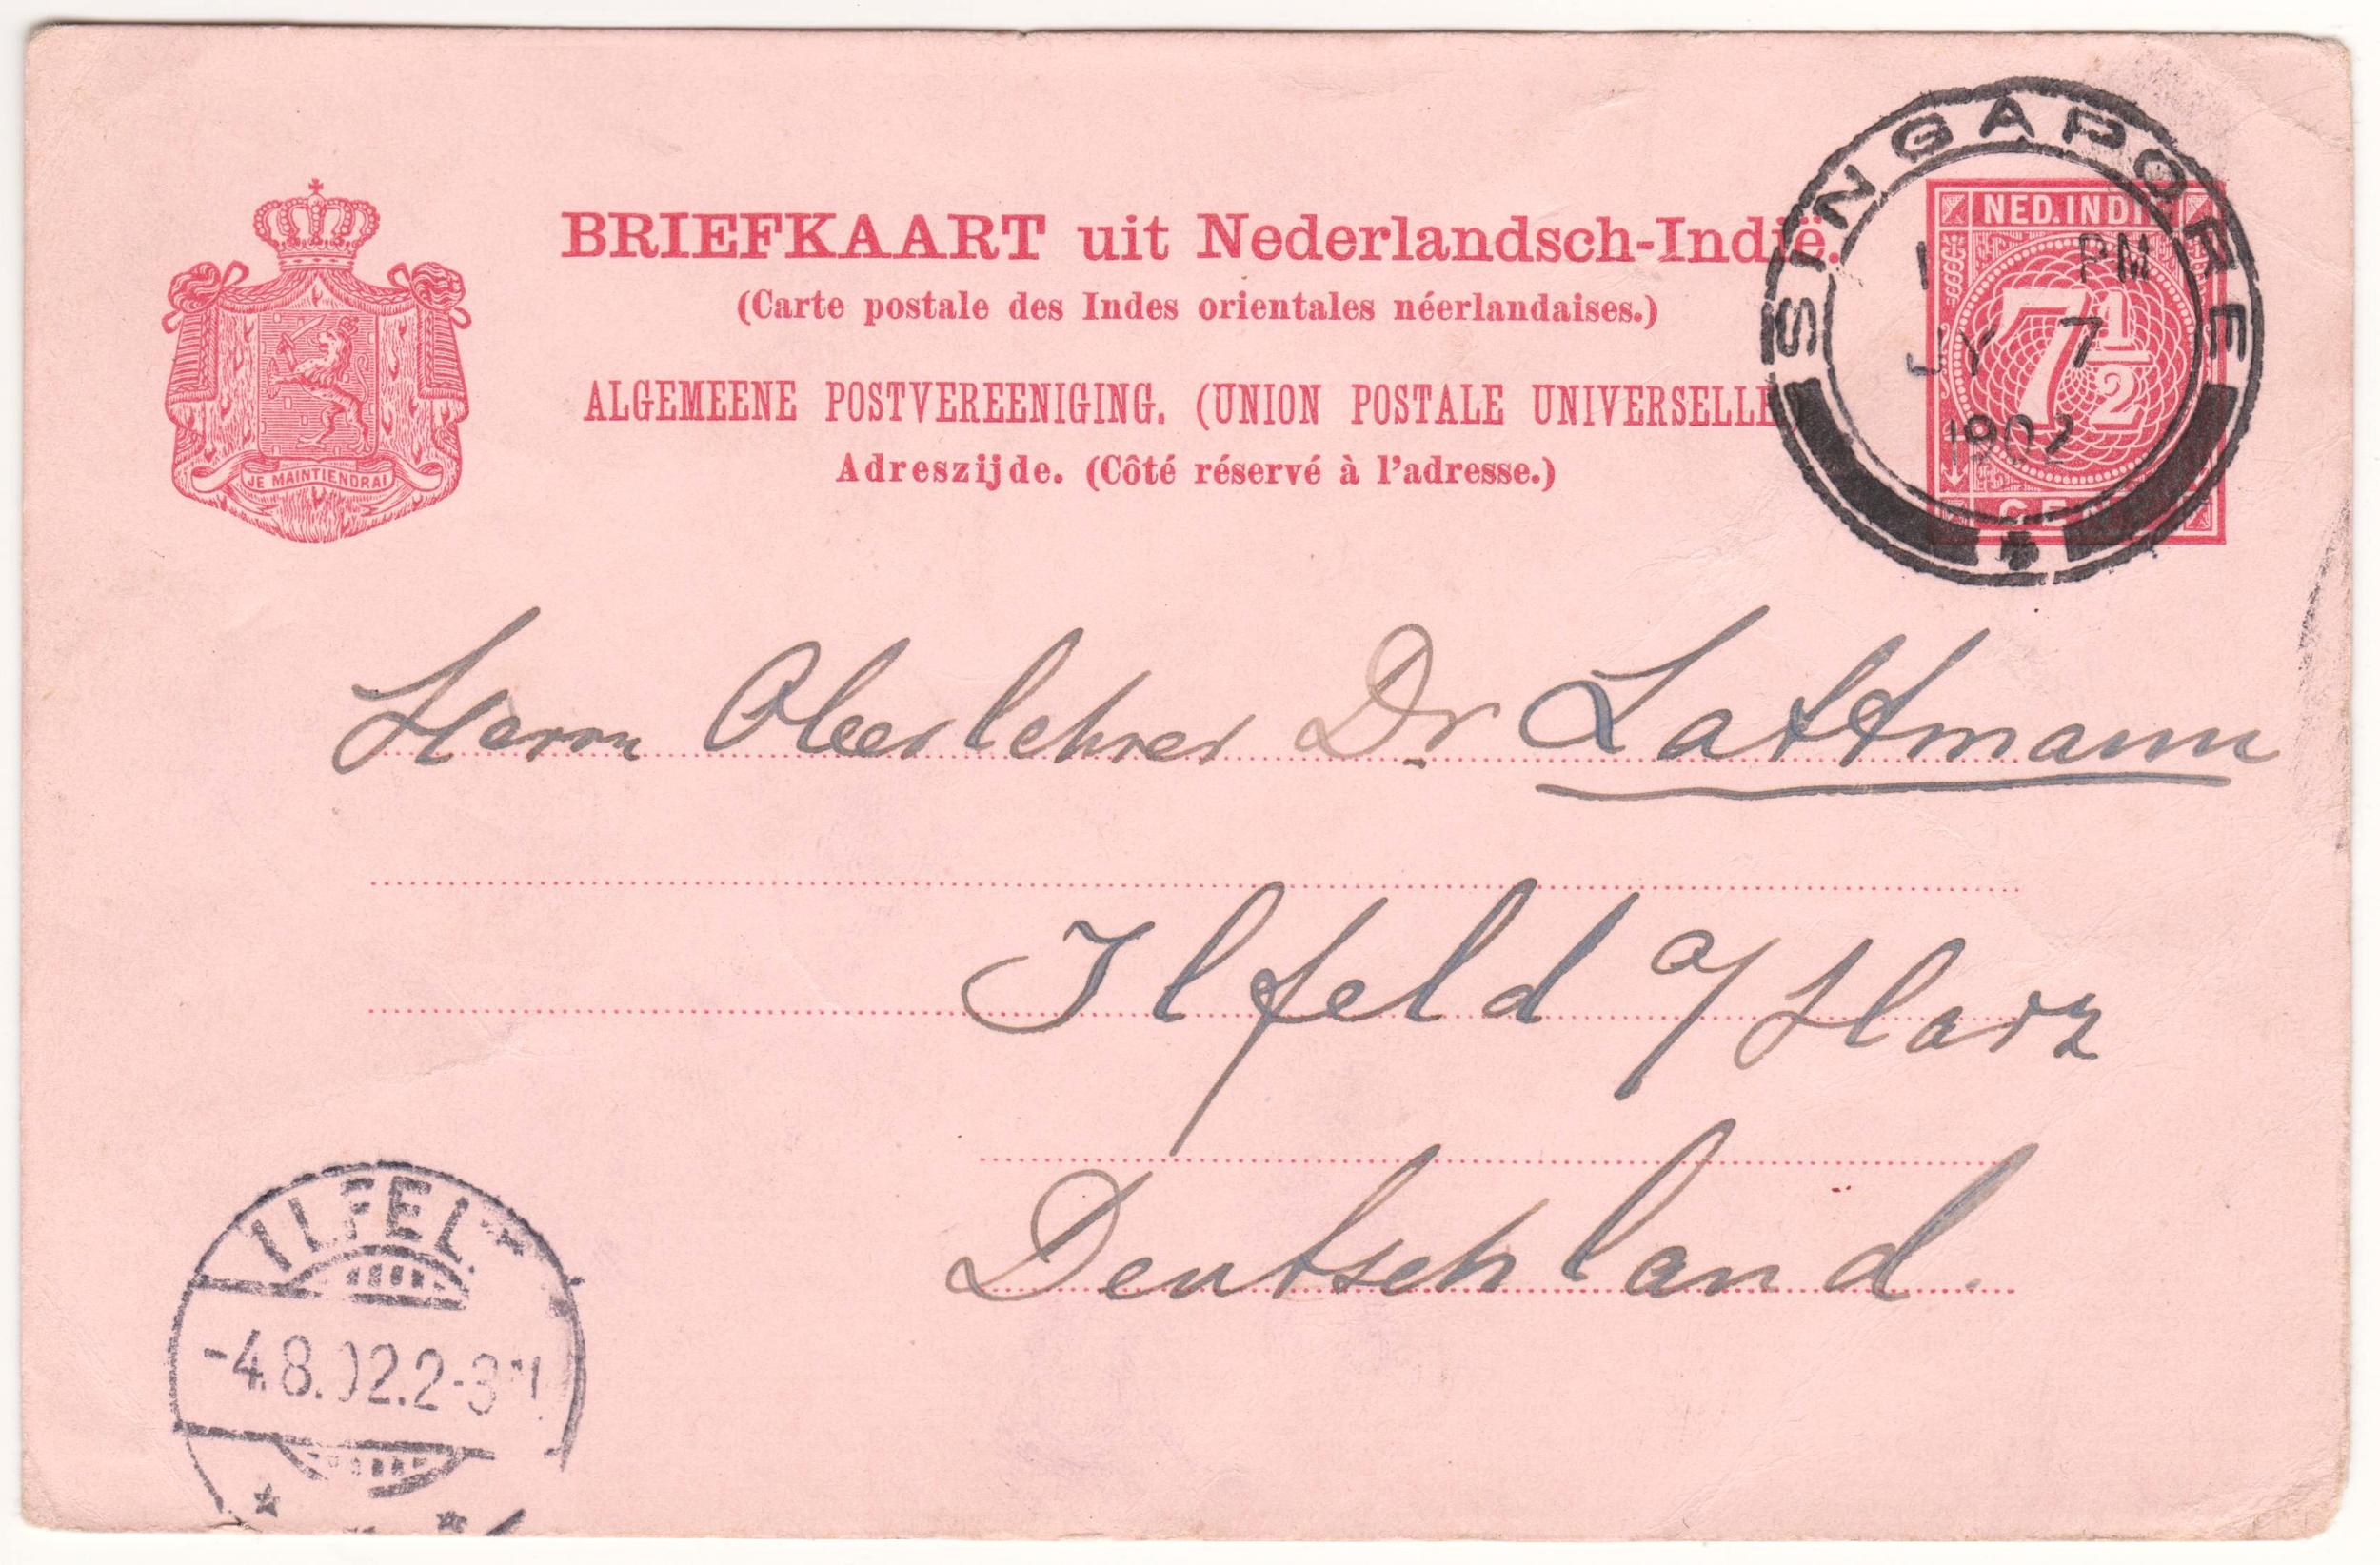 BRIEFKAART uit Nederlandsch-Indië.
(Carte postale des Indes orientales néerlandaises.)
ALGEMEENE POSTVEREENIGING. (UNION POSTALE UNIVERSELLE)
Adreszijde. (Côté réservé à l'adresse.)
JE MAINTIENDRAI
NED. INDIË
7½
CENT
SINGAPORE
1 PM
JY 7
1902
Herrn Oberlehrer Dr. Lattmann
Ilfeld a/Harz
Deutschland.
ILFELD
-4.8.02.2-3N